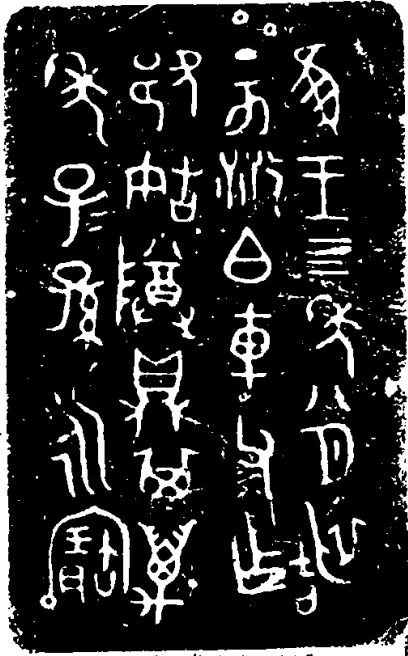 隹王四年八月初吉
丁亥散白車父乍
邪姞尊鼎其萬
年子＝孫永寶